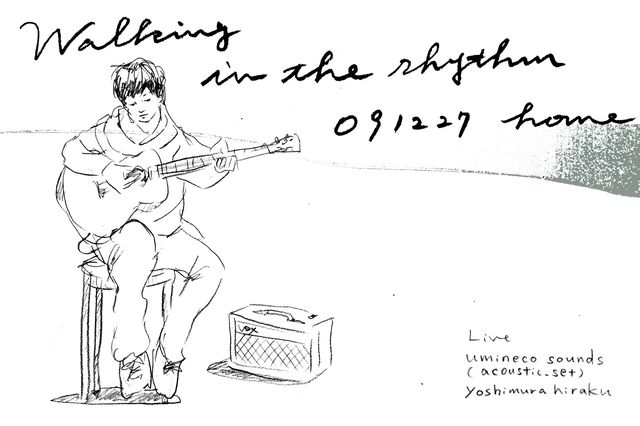 Walking
in the rhythm
091227 home
VOX
Live
umineco sounds
(acoustic.set)
yoshimura hiraku